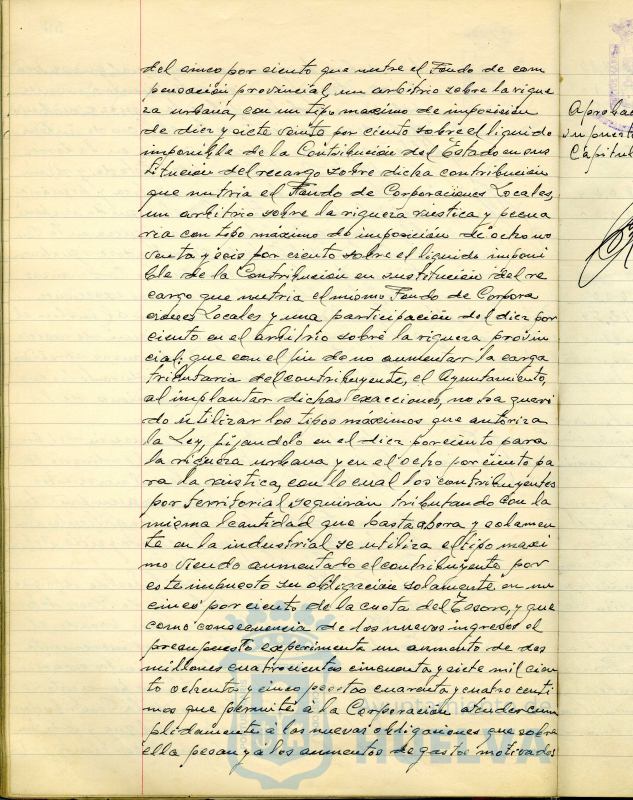 del cinco por ciento que nutre el Fondo de com
pensación provincial, un arbitrio sobre la rique
za urbana, con un tipo maximo de imposición
de diez y siete veinte por ciento sobre el liquido
imponible de la Contribución del Estado en sus
titución del recargo sobre dicha contribución
que nutria el Fondo de Corporaciones Locales,
un arbitrio sobre la riqueza rustica y pecua
ria con tipo máximo de imposición de ocho no
venta y seis por ciento sobre el liquido imponi
ble de la Contribución en sustitución del re
cargo que nutria el mismo Fondo de Corpora
ciones Locales y una participación del diez por
ciento en el arbitrio sobre la riqueza provin
cial; que con el fin de no aumentar la carga
tributaria del contribuyente, el Ayuntamiento,
al implantar dichas exacciones, no ha queri
do utilizar los tipos máximos que autoriza
la Ley, fijandolo en el diez por ciento para
la riqueza urbana y en el ocho por ciento pa
ra la rustica, con lo cual los contribuyentes
por territorial seguiran tributando con la
misma cantidad que hasta ahora y solamen
te en la industrial se utiliza el tipo maxi
mo viendo aumentado el contribuyente por
este impuesto su obligación solamente en un
cinco por ciento de la cuota del Tesoro, y que
como consecuencia de los nuevos ingresos el
presupuesto experimenta un aumento de dos
millones cuatrocientas cincuenta y siete mil cien
to ochenta y cinco pesetas cuarenta y cuatro centi
mos que permite á la Corporación atender cum
plidamente a las nuevas obligaciones que sobre
ella pesan y a los aumentos de gastos motivados
Aprobac
supuesto
Capitul
Ayuntamiento de
HUELVA